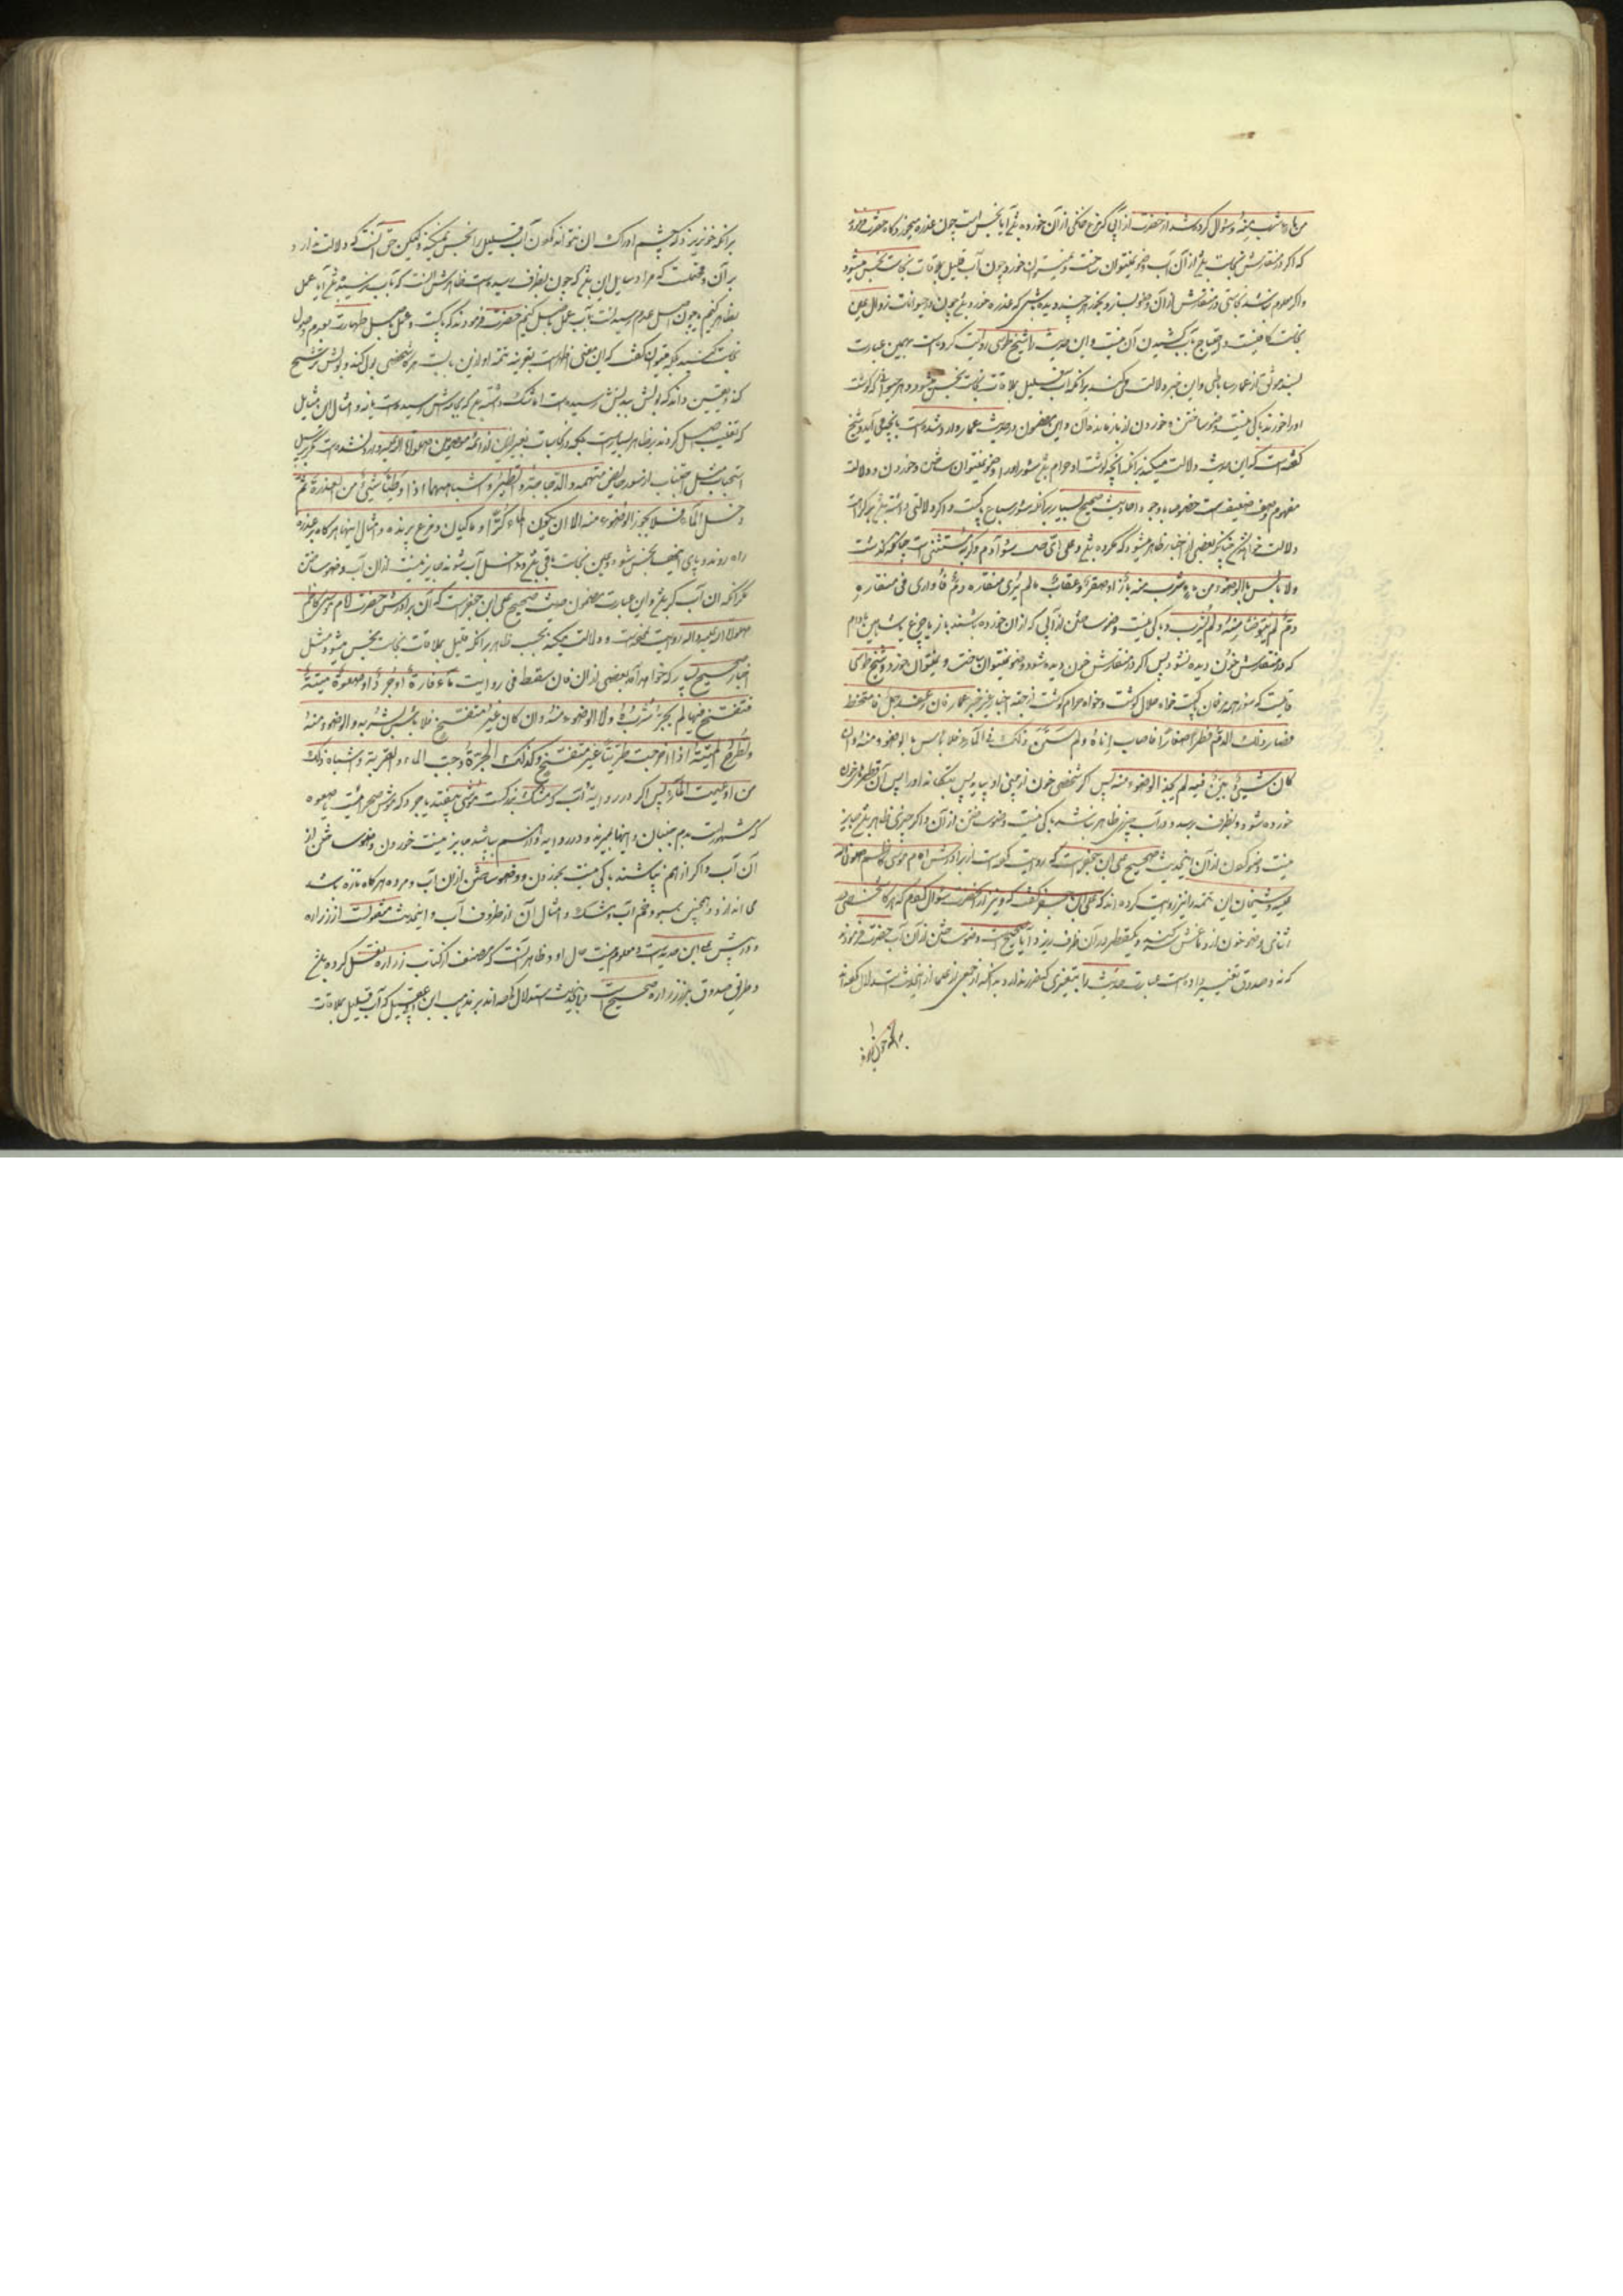 من ماء شرب منه و سؤال کرده شد از حضرت از آبی که مرغ خانگی از آن خورده باشد آیا نجس است چون عذره میخورد گاه حضرت فرمود
که اگر در منقارش نجاست باشد از آن آب وضو نمیتوان ساخت و نمیتوان خورد چون آب قلیل بملاقات نجاست نجس میشود
و اگر معلوم نباشد نجاستی در منقارش از آن وضو بساز و بخور هر چند دیده باشی که عذره خورد باشد چون در حیوانات زوال عین
نجاست کافیست و احتیاج بآب کشیدن آن نیست و این حدیث را شیخ طوسی روایت کرده است بهمین عبارت
بسند موثق از عمار ساباطی و این خبر دلالت میکند برانکه آب قلیل بملاقات نجاست نجس میشود و هر حیوانی که گوشت
اورا خورند باکی نیست وضو ساختن و خوردن از باز مانده آن و این مضمون در حدیث عمار وارد شده است بآنچه می آید و شیخ
گفته است که این حدیث دلالت میکند برانکه آنچه گوشت او حرام باشد سؤر اورا وضو نمیتوان ساختن و خوردن و دلالت
مفهوم وصف ضعیف است خصوصا با وجود احادیث صحیح بسیار برانکه سؤر سباع پاکست و اگر دلالتی داشته باشد بر کراهت
دلالت خواهد کرد چنانکه از بعضی از اخبار ظاهر میشود که مکروه باشد و علی ای حال سؤر آدم و گربه مستثنی است چنانکه گذشت
ولا بأس بالوضوء من ماء شرب منه باز او صقر او عقاب ما لم یری فی منقاره دم فان رأی فی منقاره
دم لم یتوضأ منه و لم یشرب و باکی نیست وضو ساختن از آبی که از ان خورده باشند باز یا چرغ یا شاهین مادام
که در منقارش خون دیده نشود پس اگر در منقارش خون دیده شود وضو نمیتوان ساخت و نمیتوان خورد و شیخ طوسی
قایلست که سؤر همه مرغان پاکست خواه حلال گوشت و خواه حرام گوشت از جهة اخبار غیر خبر عمار فان رعف رجل فامتخط
فصار ذلک الدم قطرا صغارا فاصاب اناءه و لم یستبن ذلک فی الماء فلا بأس بالوضوء منه و ان
کان شیئ بین فیه لم یجز الوضوء منه پس اگر شخصی خون از بینی او بیاید پس بتکاند اورا پس آن قطرهای خون
خورده شود و بظرف برسد و در آب چیزی ظاهر نباشد باکی نیست وضو ساختن از آن و اگر چیزی ظاهر باشد جایز
نیست وضو کردن از آن اینحدیث صحیح علی ابن جعفر است که روایت کرده است از برادرش امام موسی کاظم صلوات الله
علیه و شیخان این تتمه را نیز روایت کرده اند که علی ابن جعفر گفت که و نیز از آنحضرت سؤال کردم که هرگاه شخصی در
اثنای وضو خون از دماغش آید و یکقطره در آن ظرف ریزد آیا صحیح است وضو ساختن از آن آب حضرت فرمودند
که نه و صدوق تغییر داده است عبارت حدیث را بتغییری که ضرر ندارد بدانکه جمعی از علما از اینحدیث استدلال کرده اند
برانکه
برانکه خون ریزه که چشم ادراک ان نتواند کردن آب قلیل را نجس نمیکند و لیکن حق آنست که دلالت ندارد
بر آن و محتمل است که مراد سایل این باشد که چون بظرف رسیده است ظاهرش آنست که بآب رسیده باشد آیا عمل
بظاهر کنیم یا چون اصل عدم رسیدن است بآب عمل باصل کنیم حضرت فرمودند که پاکست و عمل باصل طهارت و عدم وصول
نجاست کنید بلکه میتوان گفت که این معنی اظهر است بقرینه تتمه او و ازین باب است هرگاه شخصی بول کند و بولش ترشح
کند و یقین داند که بولش ببدنش رسیده است اما شک داشته باشد که بجامه اش رسیده است یا نه و امثال این مسایل
که تغلیب اصل کرده اند بر ظاهر بسیار است بلکه در نجاسات بغیر این از ائمه معصومین صلوات الله علیهم وارد نشده است مگر بر سبیل
استحباب مثل اجتناب از سؤر حایض متهمه و الدجاجة و الطیر و اشباههما اذا وطئا شیئا من العذرة ثم
دخل الماء فلا یجوز الوضوء منه الا ان یکون الماء کرا و ماکیان و مرغ پرنده و امثال اینها هرگاه بر عذره
راه روند و پای ایشان نجس شود و عین نجاست باقی باشد و داخل آب شوند جایز نیست از ان آب وضو ساختن
مگر آنکه ان آب کر باشد و این عبارت مضمون حدیث صحیح علی ابن جعفر است که آن برادرش حضرت امام موسی کاظم
صلوات الله علیه و اله روایت نموده است و دلالت میکند بحسب ظاهر برانکه قلیل بملاقات نجاست نجس میشود مثل
اخبار صحیح بسیار که خواهد آمد بعضی از ان فان سقط فی راویة ماء فارة او جرذ او صعوة میتة
فتفسخ فیها لم یجز شربه ولا الوضوء منه و ان کان غیر متفسخ فلا بأس بشربه و الوضوء منه
و تطرح المیتة اذا خرجت طریة غیر متفسخ و کذلک الجرة و حب الماء و القربة و اشباه ذلک
من اوعیة الماء پس اگر در راویه آب که مشک بزرگست موشی بیفتد یا جرذ که موش صحراییست یا صعوه
که مشهور است بدم جنبان و اینها بمیرند و در راویه از هم بپاشد جایز نیست خوردن و وضو ساختن از
آن آب و اگر از هم نپاشند باکی نیست بخوردن و وضو ساختن از ان آب و مرده هرگاه تازه باشد
می اندازد و همچنین سبو و خم آب و مشک و امثال آن از ظروف آب و اینحدیث منقولست از زراره
و درش علی ابن حدید است و معلوم نیست حال او و ظاهر آنست که مصنف از کتاب زراره نقل کرده باشد
و طریق صدوق بزراره صحیح است و باینحدیث استدلال کرده اند بر مذهب ابن ابی عقیل که آب قلیل بملاقات